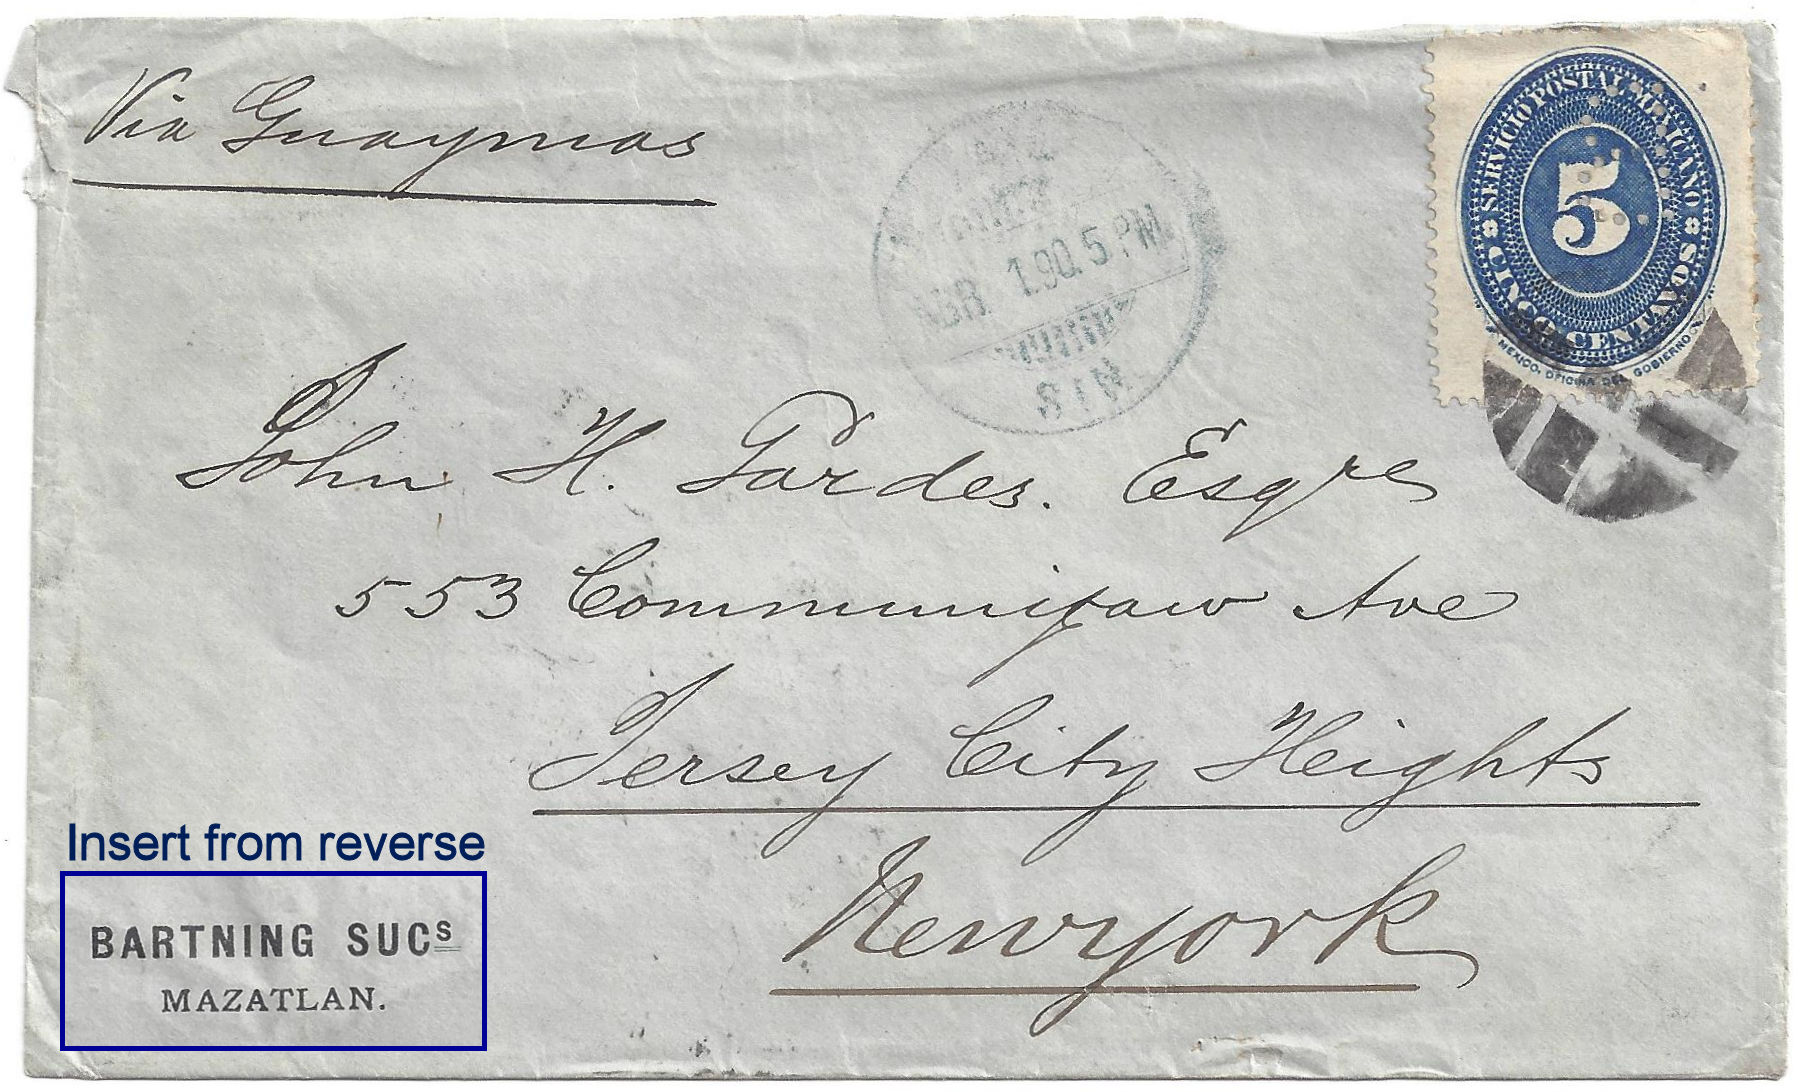 Via Guaymas
SERVICIO POSTAL MEXICANO
5
CINCO CENTAVOS
MEXICO, OFICINA DEL GOBIERNO
ABR. 1.90. 5 PM
SIN.
John H. Gardes. Esqre
553 Communipaw Ave
Jersey City Heights
Newyork
Insert from reverse
BARTNING SUCs
MAZATLAN.